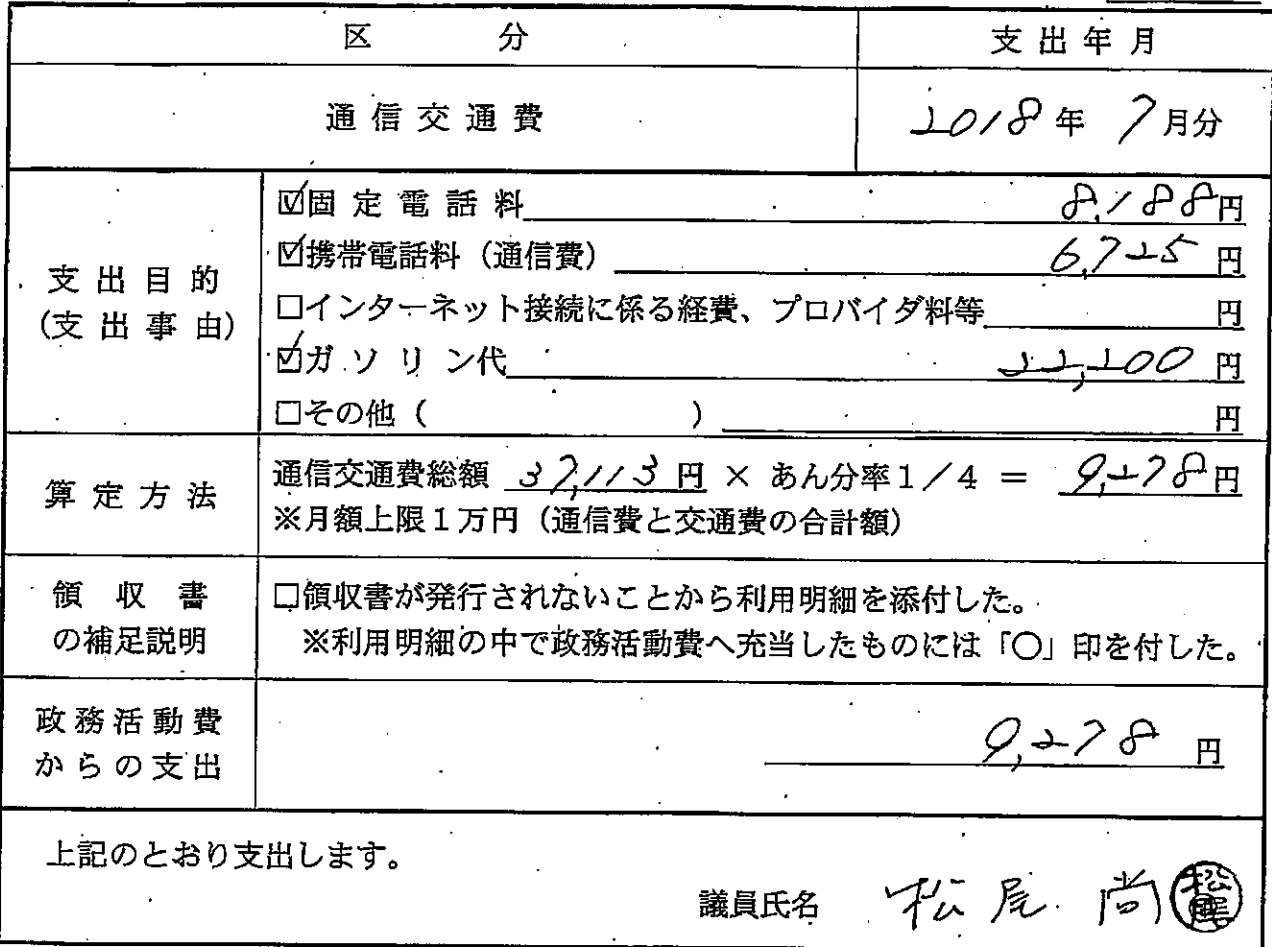 区分 支出年月
通信交通費 2018年 7月分
支出目的
(支出事由)
☑固定電話料 8,188円
☑携帯電話料(通信費) 6,725円
□インターネット接続に係る経費、プロバイダ料等 円
☑ガソリン代 22,200円
□その他( ) 円
算定方法
通信交通費総額 37,113円 × あん分率1/4 = 9,278円
※月額上限1万円(通信費と交通費の合計額)
領収書
の補足説明
□領収書が発行されないことから利用明細を添付した。
※利用明細の中で政務活動費へ充当したものには「〇」印を付した。
政務活動費
からの支出
9,278円
上記のとおり支出します。
議員氏名 松尾 尚 松尾